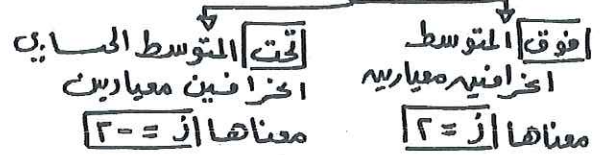 فوق المتوسط
انحرافين معياريين
معناها ز = ٢
تحت المتوسط الحسابي
انحرافين معياريين
معناها ز = -٢